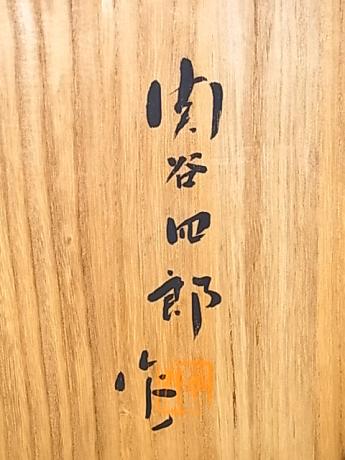 関谷四郎作